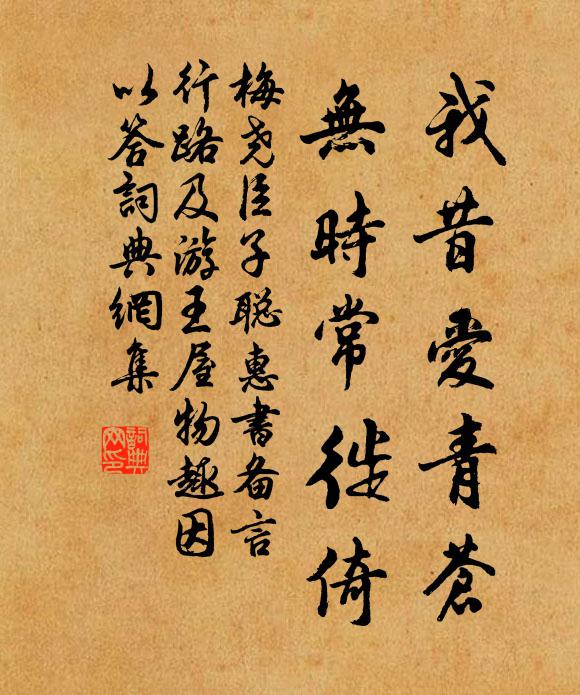 我昔愛青蒼
無時常徙倚
梅尧臣子聪惠書备言
行路及游王屋物趣因
以答詞典網集
詞典
网印